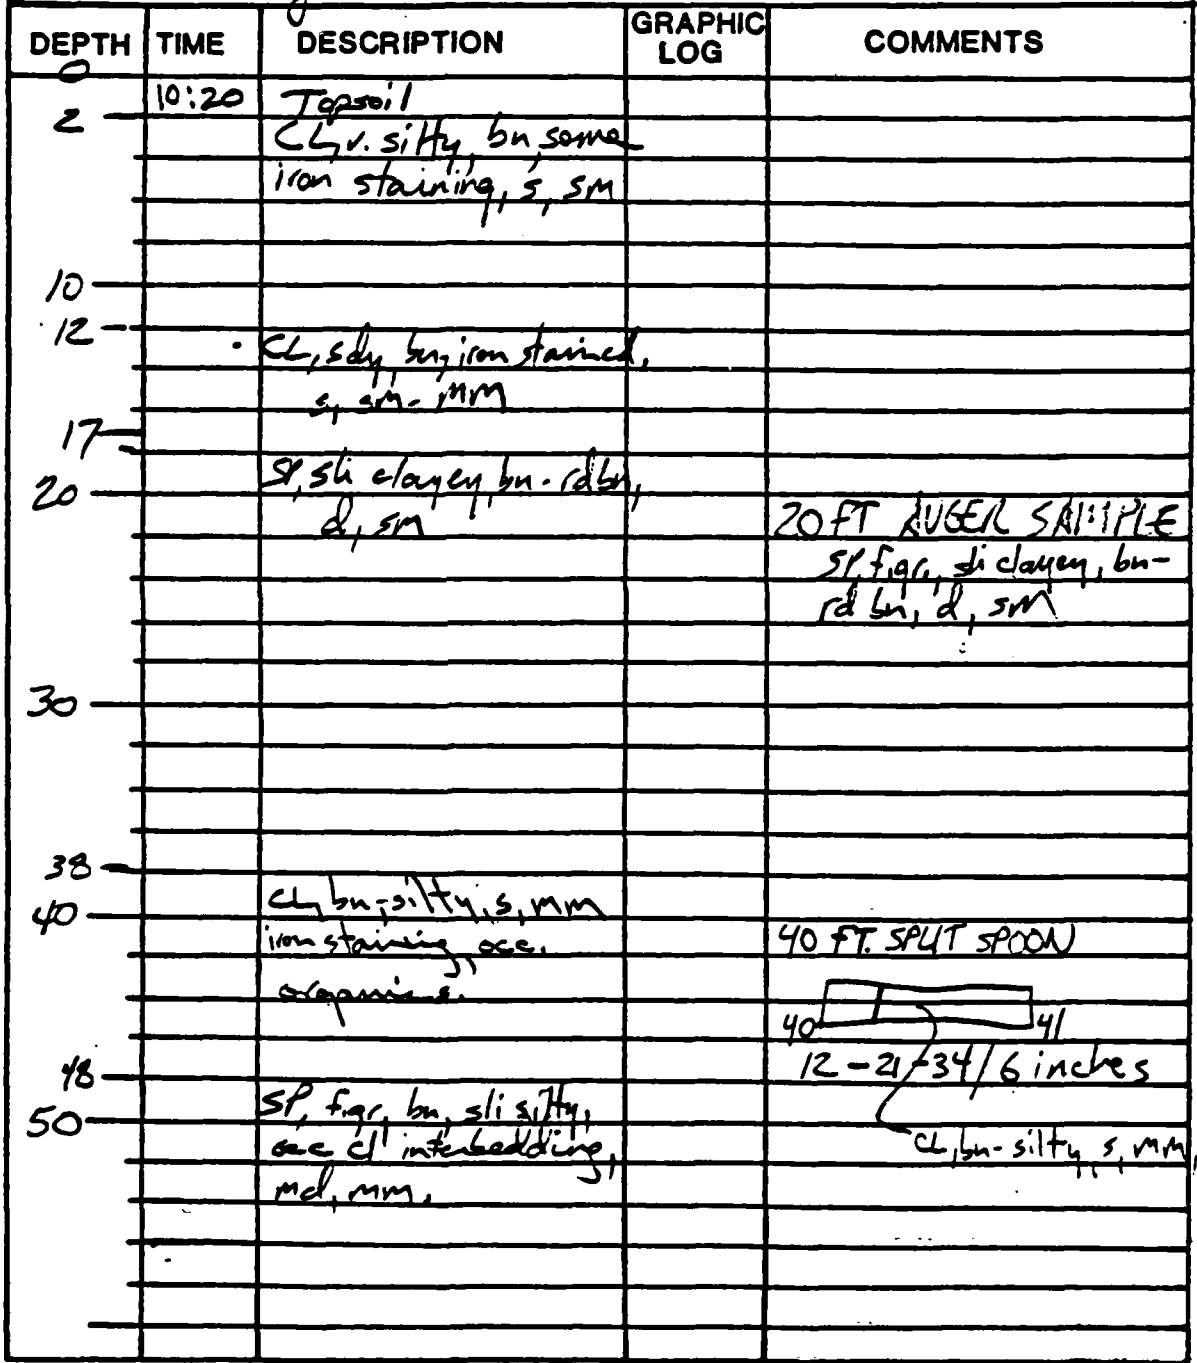 DEPTH TIME DESCRIPTION GRAPHIC LOG COMMENTS
0
10:20 Topsoil
2
CL, v. silty, bn, some
iron staining, s, sm
10
12
CL, sdy, bn, iron stained,
s, sm - mm
17
SP, sli clayey, bn - rdbn,
20
d, sm
20 FT AUGER SAMPLE
SP, f.gr., sli clayey, bn-
rd bn, d, sm
30
38
CL, bn-silty, s, mm
40
iron staining, occ.
40 FT. SPLIT SPOON
organics.
40 41
12-21-34/6 inches
48
SP, f.gr, bn, sli silty,
50
occ cl interbedding,
CL, bn-silty, s, mm,
md, mm.